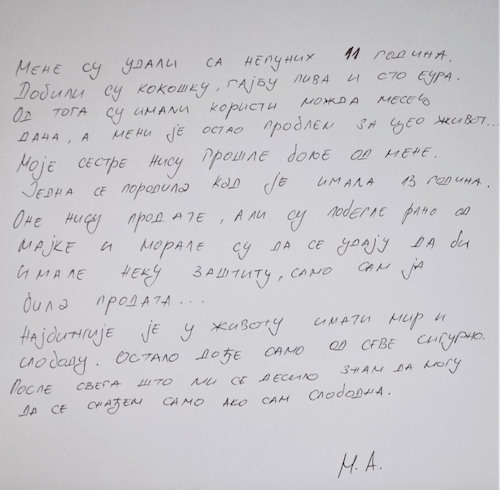 Мене су удали са непуних 11 година.
Добили су кокошку, гајбу пива и сто еура.
Од тога су имали користи можда месец
дана, а мени је остао проблем за цео живот...
Моје сестре нису прошле боље од мене.
Једна се породила кад је имала 13 година.
Оне нису продате, али су побегле рано од
мајке и морале су да се удају да би
имале неку заштиту, само сам ја
била продата...
Најбитније је у животу имати мир и
слободу. Остало дође само од себе сигурно.
После свега што ми се десило знам да могу
да се снађем само ако сам слободна.
М.А.